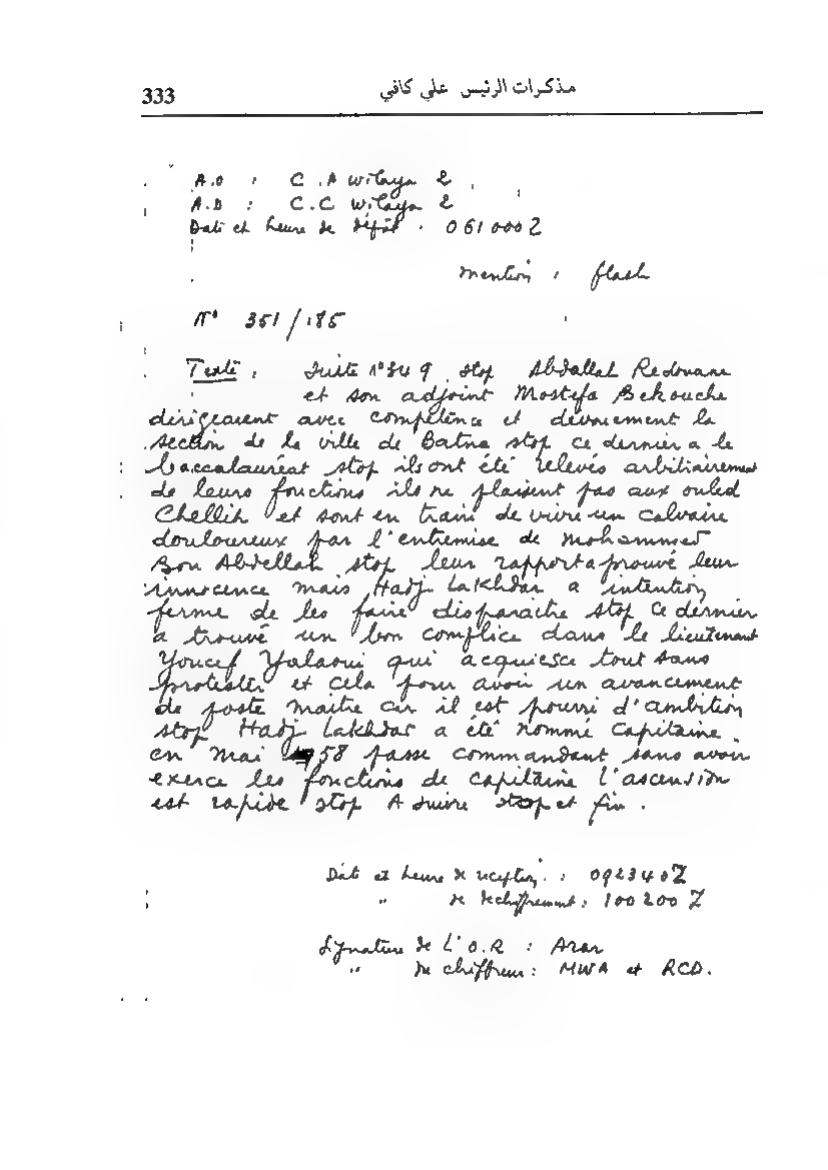 333
مذكرات الرئيس علي كافي
A.O : C.A Wilaya 2
A.D : C.C Wilaya 2
Date et heure de dépôt : 061000Z
mention : flash
N° 351/185
Texte : Suite N° 349 stop Abdallah Redouane
et son adjoint Mostefa Bekouche
dirigeaient avec compétence et dévouement la
section de la ville de Batna stop ce dernier a le
baccalauréat stop ils ont été relevés arbitrairement
de leurs fonctions ils ne plaisent pas aux ouled
Chellih et sont en train de vivre un calvaire
douloureux par l'entremise de Mohammed
Bou Abdellah stop leur rapport a prouvé leur
innocence mais Hadj Lakhdar a intention
ferme de les faire disparaitre stop Ce dernier
a trouvé un bon complice dans le lieutenant
Youcef Yalaoui qui acquiesce tout sans
protester et cela pour avoir un avancement
de poste maitre car il est pourri d'ambition
stop Hadj Lakhdar a été nommé capitaine
en Mai 1958 passe commandant sans avoir
exercé les fonctions de capitaine l'ascension
est rapide stop A suivre stop et fin.
Date et heure de réception : 092340Z
" de déchiffrement : 100200Z
Signature de L'O.R : Arar
" du chiffreur : MWA et RCD.